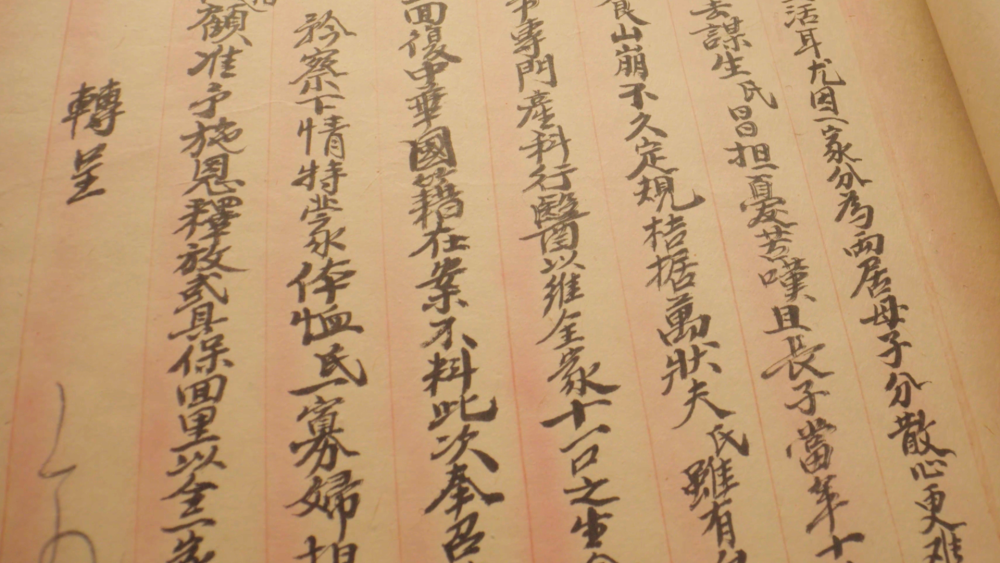 活耳尤因一家分為兩居母子分散心更难
去謀生氏日日担憂苦嘆且長子當年十
食山崩不久定規桔据萬狀夫氏雖有
事專門產科行醫以維全家十一口之生
面復中華國籍在案不料此次奉召
矜察下情特蒙体恤氏一寡婦担
顧准予施恩釋放或具保回里以全
轉呈